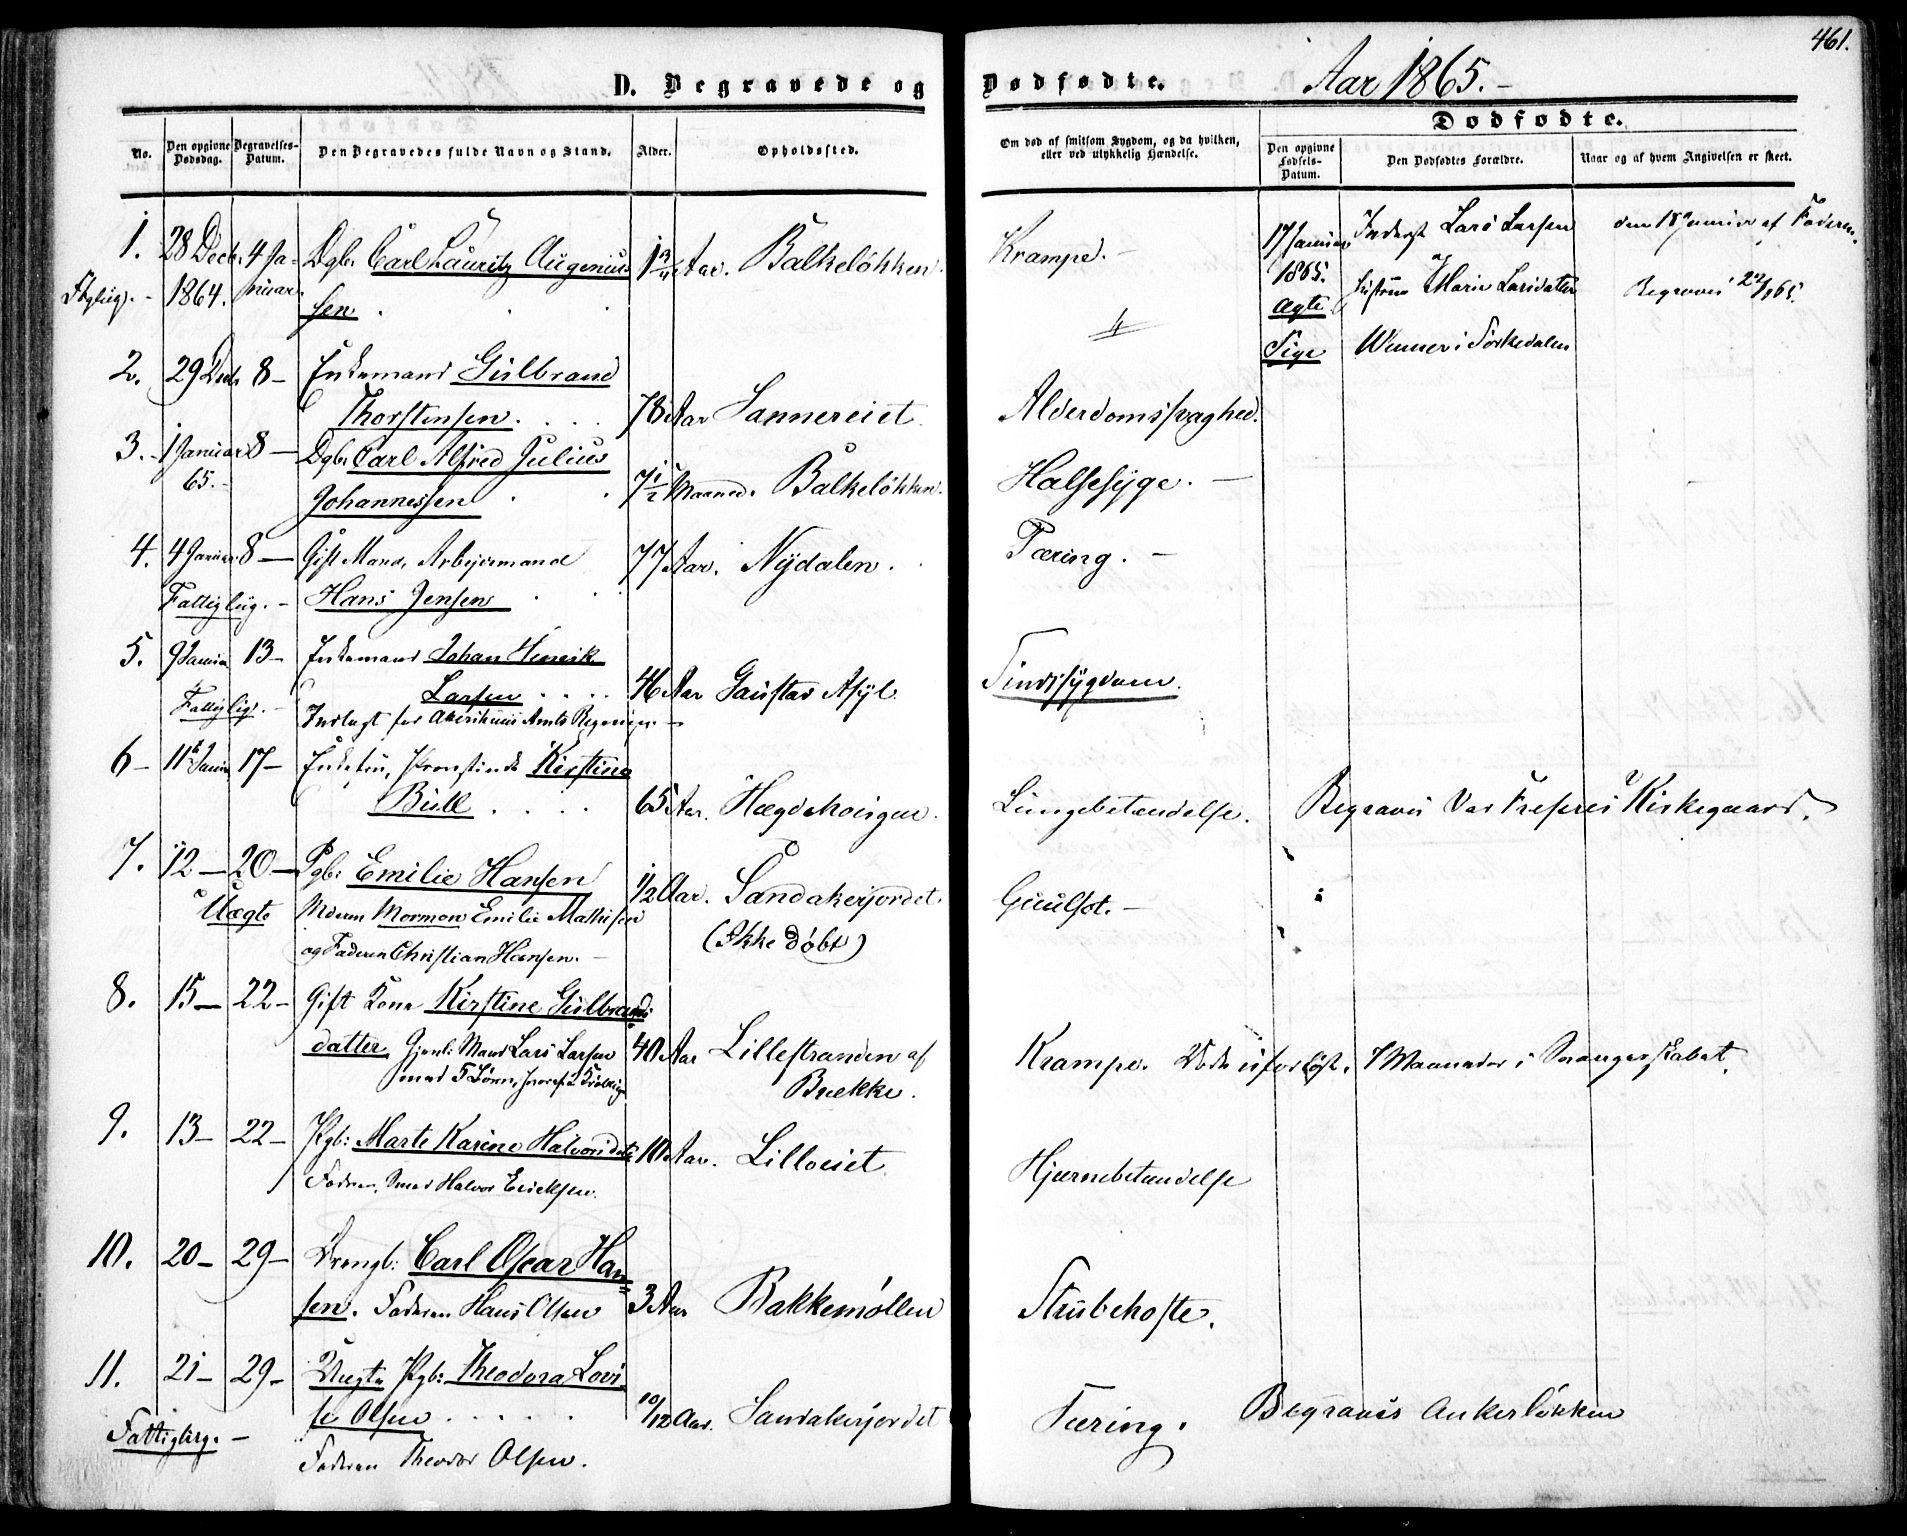 461.
D. Begravede og Dødfødte. Aar 1865.-
Dødfødte.
No. Den opgivne Dødsdag. Begravelses-Datum. Den Begravedes fulde Navn og Stand. Alder. Opholdssted.
Om død af smitsom Sygdom, og da hvilken, eller ved ulykkelig Hændelse. Den opgivne Fødsels-Datum. Den Dødfødtes Forældre. Naar og af hvem Angivelsen er skeet.
1. 28 Decb. 4 Ja- Dgb. Carl Lauritz Augenius Aar. Balkeløkken. Krampe.-
1864. nuar sen
17 Januar Inderst Lars Larsen den 18 Januar af Faderen.
1865. Hustru Marie Larsdatter Begravet 22/1 65.
Ægte
Pige i Sørkedalen
2. 29 Decb 8- Enkemand Gulbrand
Thorstensen. 78 Aar Sannereiet. Alderdomssvaghed.
3. 1 Januar 8- Dgb. Carl Alfred Julius
65.- Johannessen 7 1/2 Maaned. Balkeløkken. Halsesyge.-
4. 4 Januar 8- Gift Mand, Arbejdsmand 77 Aar. Nydalen. Tæring.-
Fattiglig.- Hans Jensen
5. 9 Januar 13- Enkemand Johan Henrik
Fattiglig.- Larsen 46 Aar Gaustad Asyl Sindssygdom.
Indlagt for Akershuus Amts Regning.-
6- 11 Januar 17- Enkefru, Provstinde Kirstine
Bull 65 Aar. Hægdehougen. Lungebetændelse. Begravet Vor Frelsers Kirkegaard.
7. 12- 20- Pgb. Emilie Hansen 1/2 Aar. Sandakerjordet. Guulsot.-
Uægte Moderen Mormon Emilie Mathisen (Ikke døbt)
og Faderen Christian Hansen.-
8. 15- 22- Gift Kone Kirstine Gulbrands
datter Mand Lars Larsen 40 Aar Lillestranden af Krampe. Døde uforløst, 7 Maaneder i Svangerskabet.
med 5 Børn, Brekke.
9. 13- 22- Pgb: Marte Karine Halvorsdatr 10 Aar. Lilloeiet Hjernebetændelse
Faderen, Smed Halvor Ericksen.
10. 20- 29- Drengb: Carl Oscar Han-
sen. Faderen Hans Olsen 3 Aar Bakkemøllen Strubehoste.
11. 21- 29- Uægte Pgb: Theodora Lovi-
se Olsen 10/12 Aar. Sandakerjordet Tæring. Begravet Ankerløkken
Fattiglig.-
Faderen Theodor Olsen.